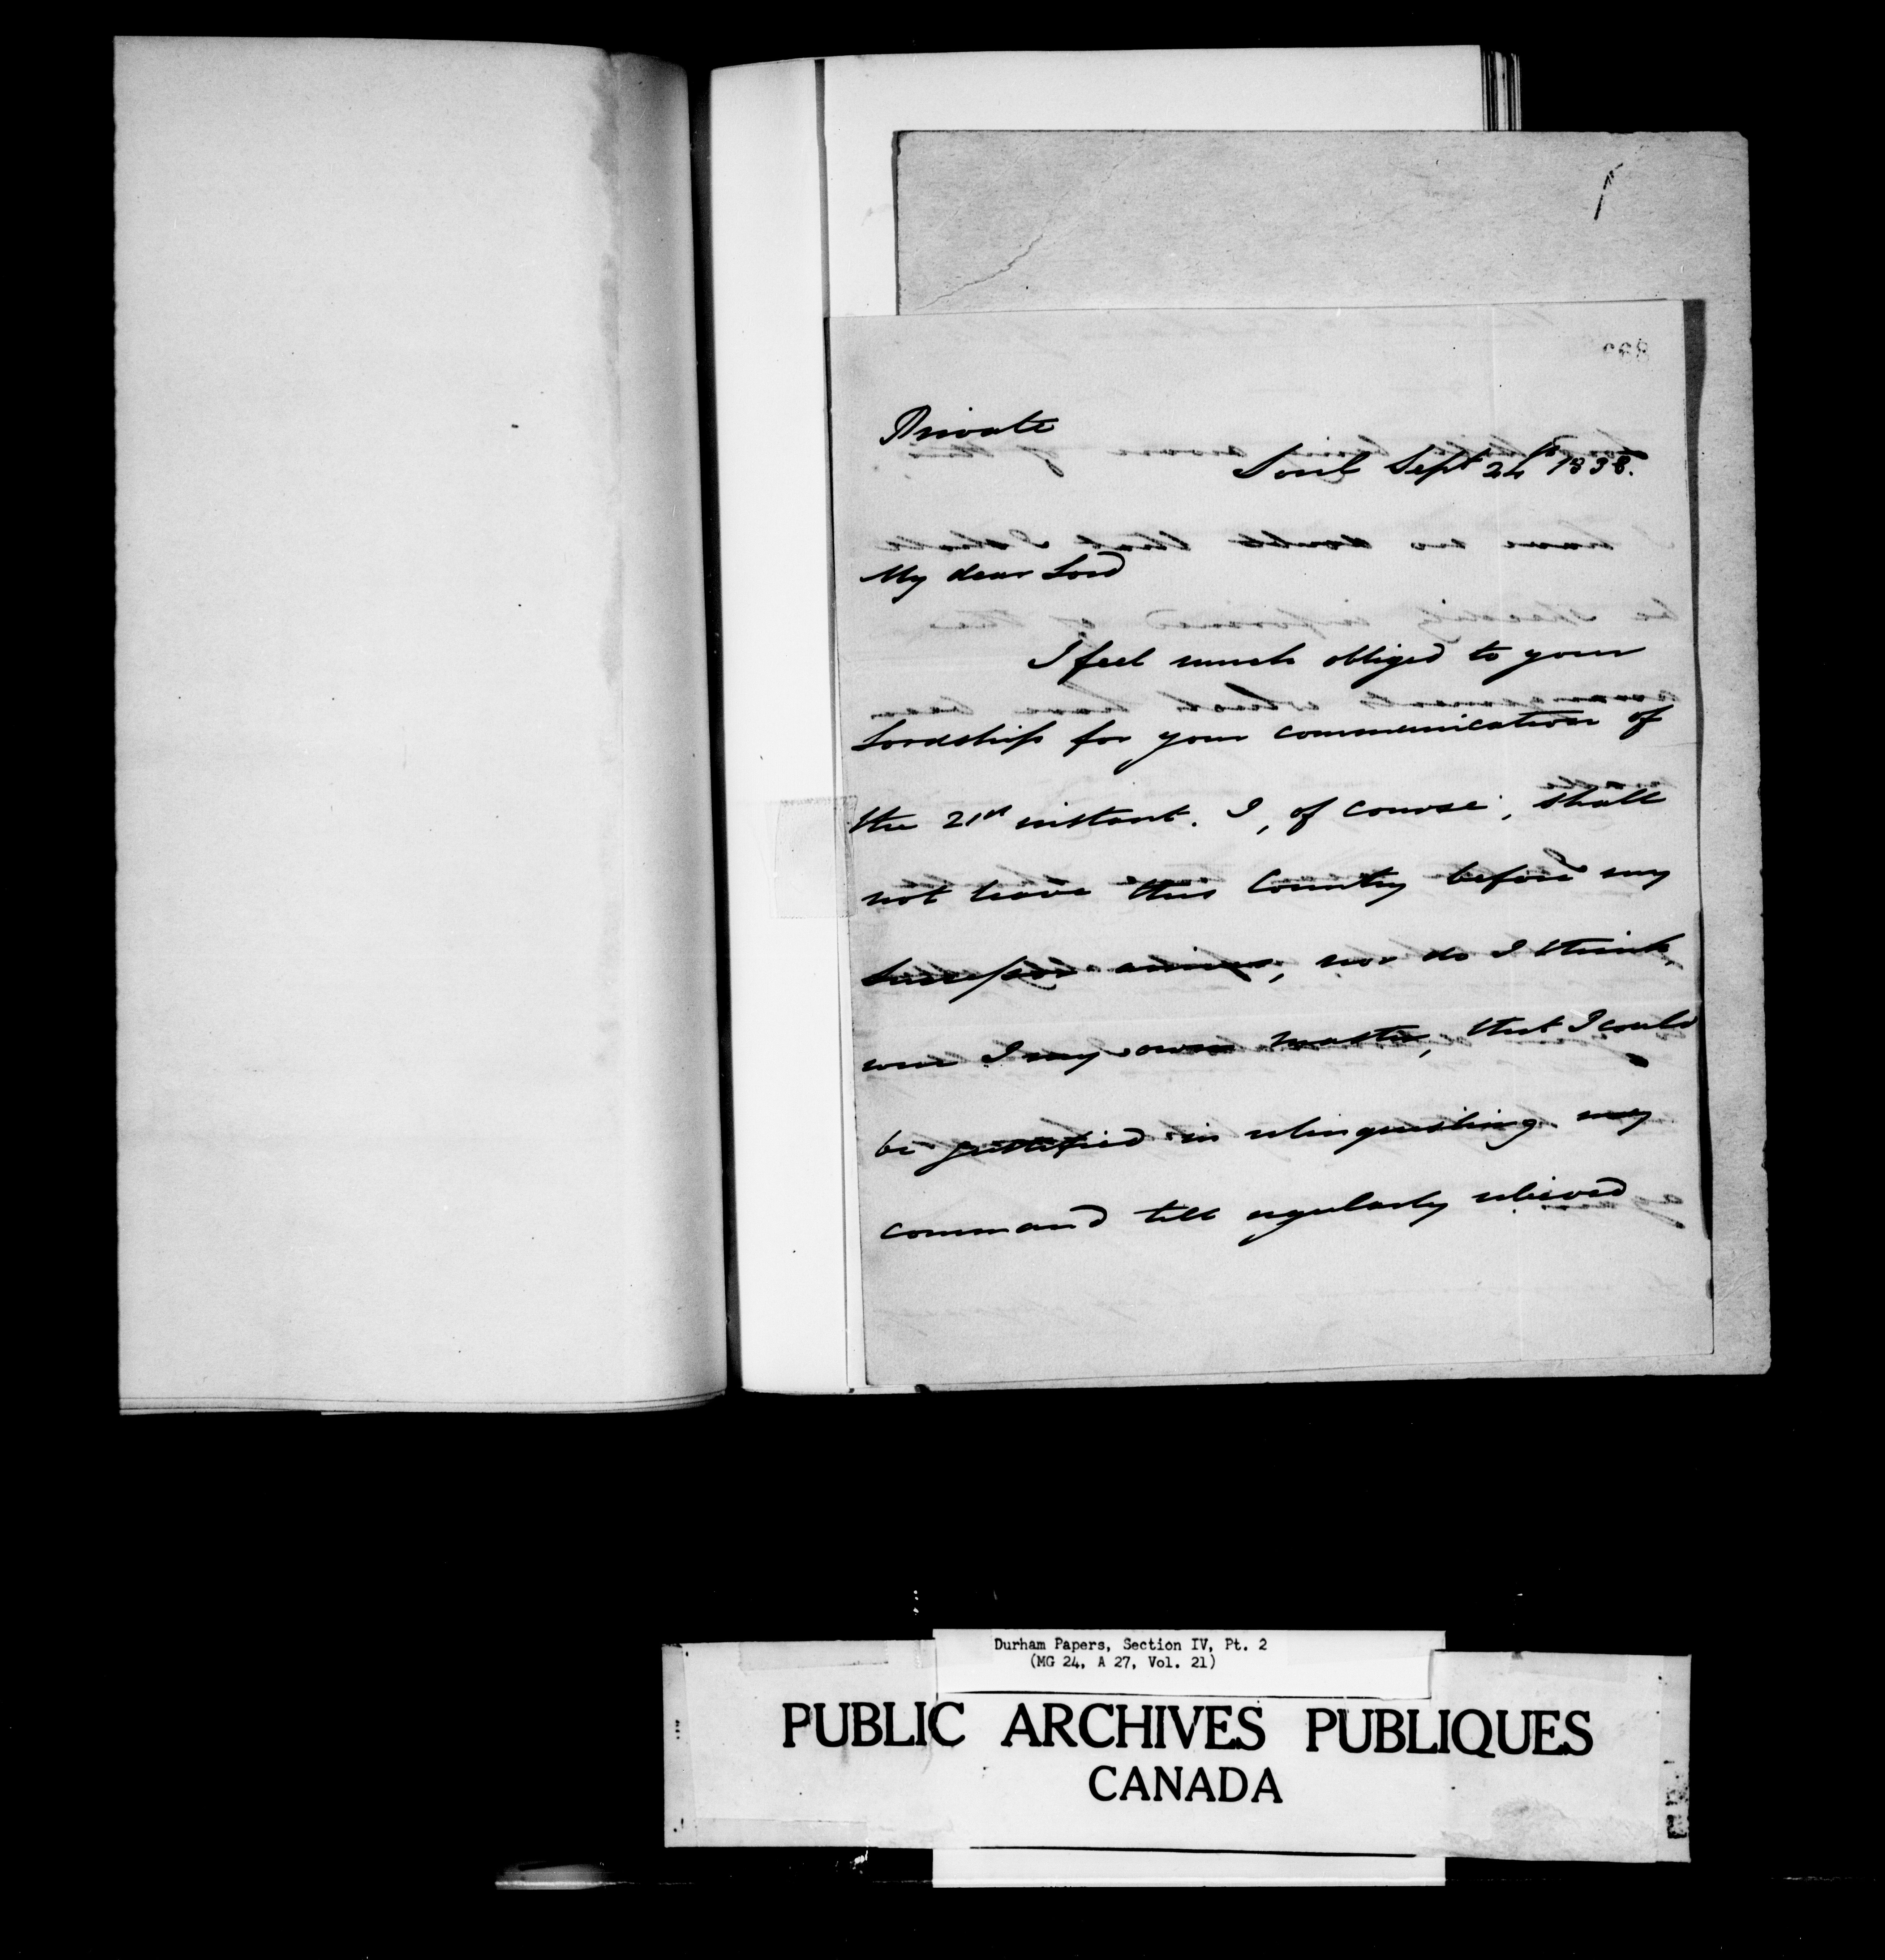 Private
Sorel Sept 24th 1838.
My dear Lord
I feel much obliged to your
Lordship for your communication of
the 21st instant. I, of course, shall
not leave this Country before my
Successor arrives, nor do I think,
were I my own master, that I could
be justified in relinquishing my
command till regularly relieved
Durham Papers, Section IV, Pt. 2
(MG 24, A 27, Vol. 21)
PUBLIC ARCHIVES PUBLIQUES
CANADA